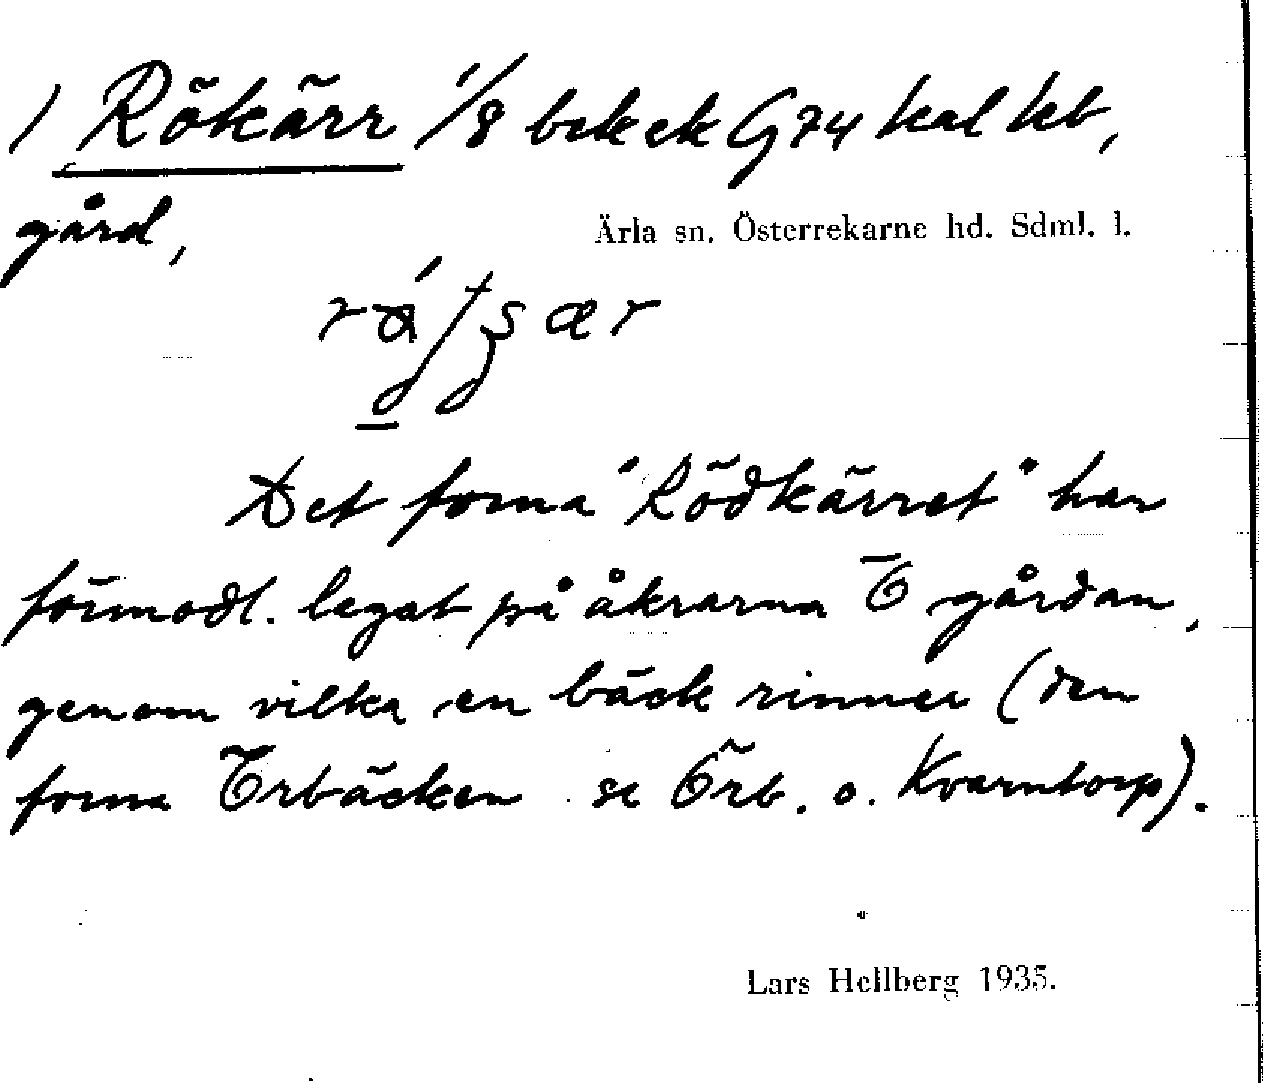 1 Rökärr 1/8 bek ek G74 kal kb,
gård,
Ärla sn. Österrekarne hd. Sdml. l.
Det forna "Rödkärret" har
förmodl. legat på åkrarna Ö gården,
genom vilka en bäck rinner (den
forna Örbäcken se Örb. o. Kvarntorp).
Lars Hellberg 1935.